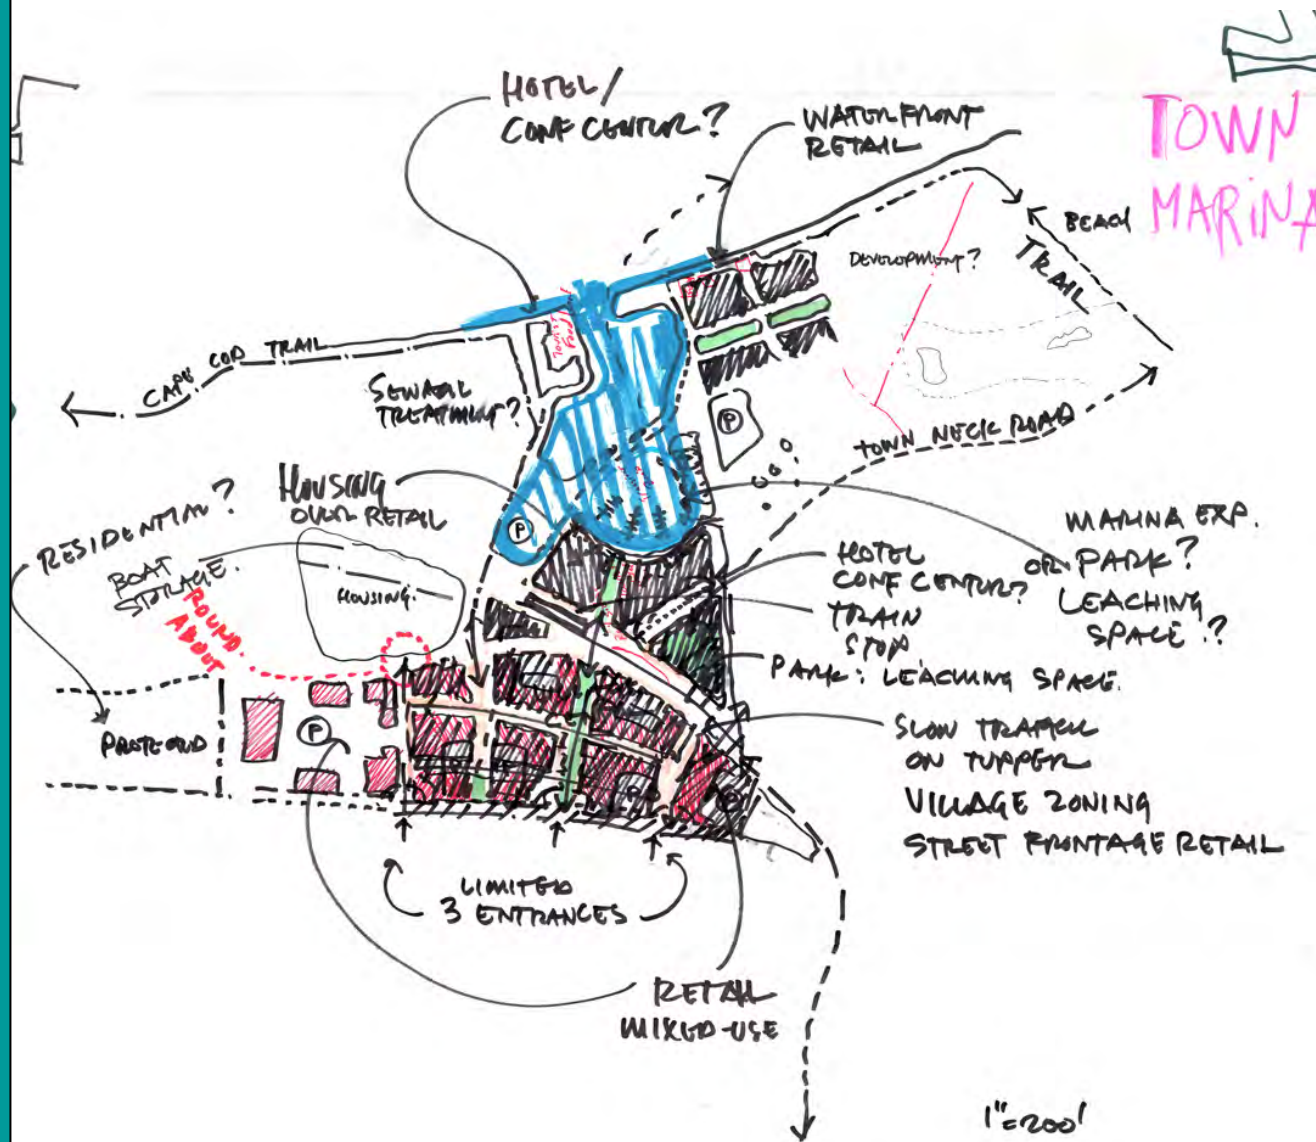 HOTEL/
CONF CENTER?
WATERFRONT
RETAIL
TOWN
MARINA
BEACH
TRAIL
DEVELOPMENT?
CAPE COD TRAIL
SEWAGE
TREATMENT?
P
TOWN NECK ROAD
HOUSING
OVER RETAIL
P
RESIDENTIAL?
BOAT
STORAGE
ROUND
ABOUT
HOUSING
MARINA EXP.
OR PARK?
LEACHING
SPACE?
HOTEL
CONF CENTER?
TRAIN
STOP
PARK: LEACHING SPACE.
P
SLOW TRAFFIC
ON TUPPER
VILLAGE ZONING
STREET FRONTAGE RETAIL
LIMITED
3 ENTRANCES
RETAIL
MIXED-USE
1"=200'